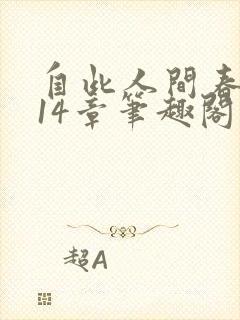 自此人間春
14章筆趣閣
超A